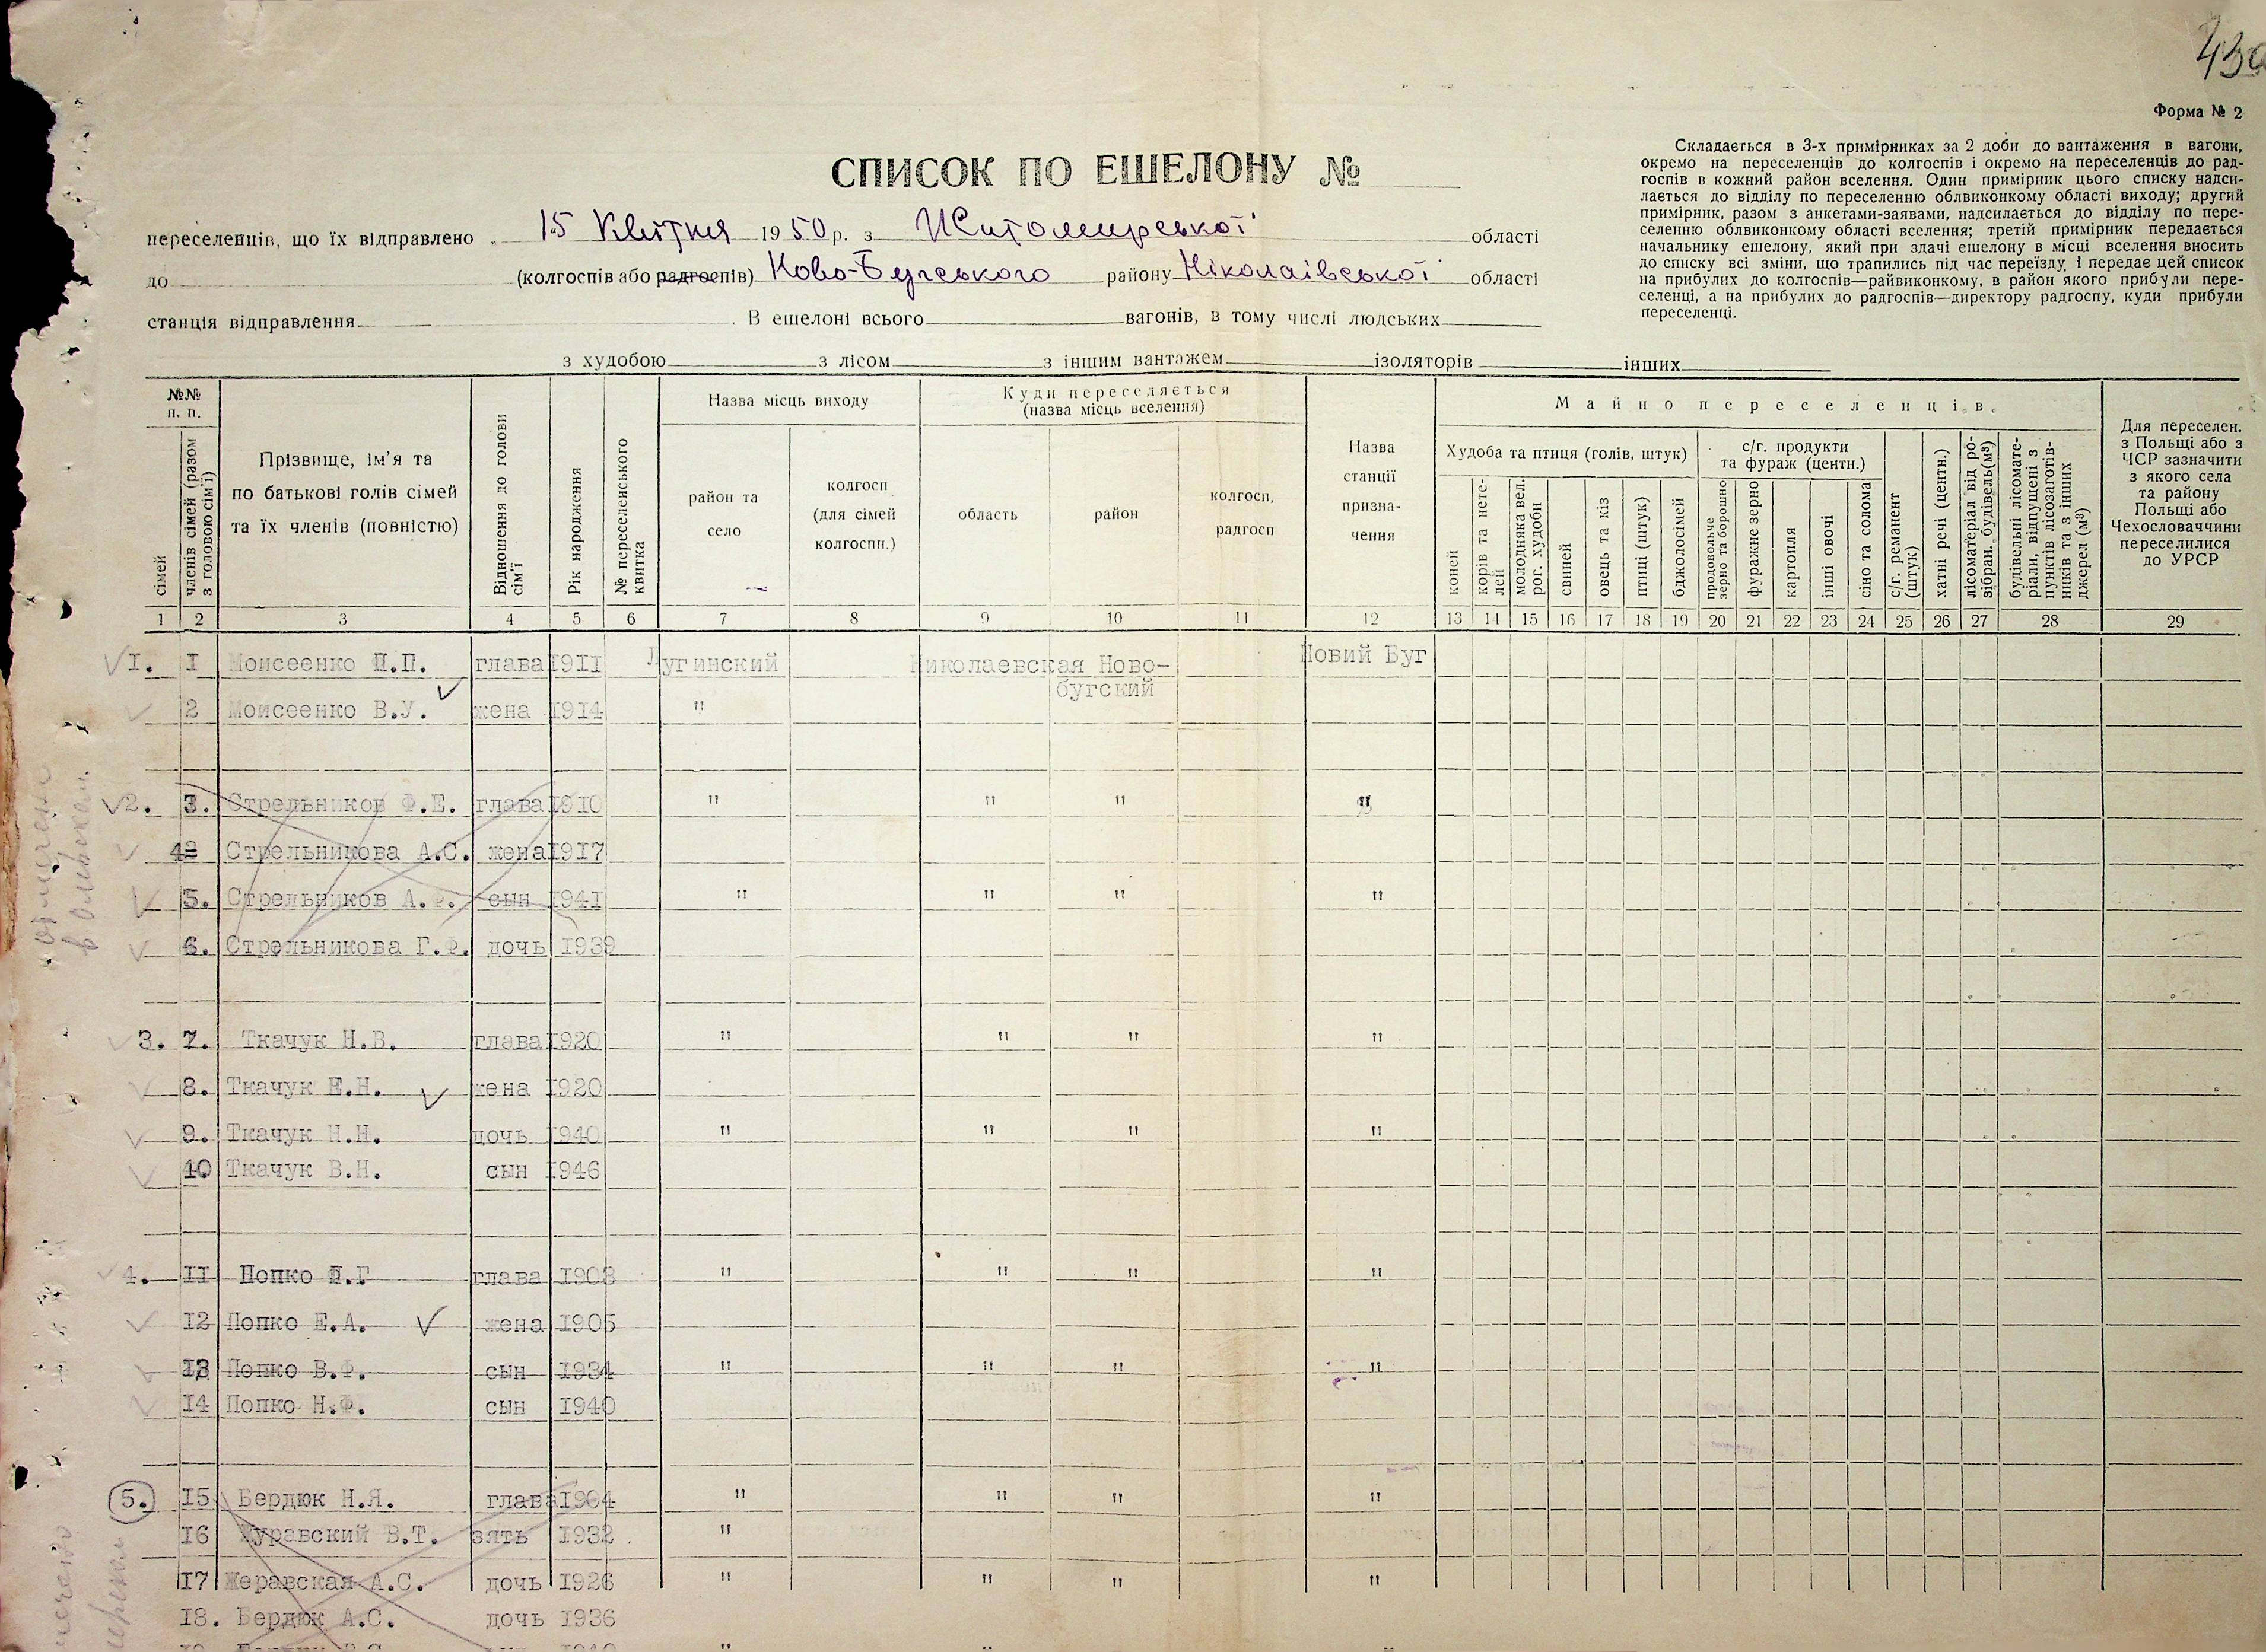 43
Форма № 2
Складається в 3-х примірниках за 2 доби до вантаження в вагони,
окремо на переселенців до колгоспів і окремо на переселенців до рад-
госпів в кожний район вселення. Один примірник цього списку надси-
лається до відділу по переселенню облвиконкому області виходу; другий
примірник, разом з анкетами-заявами, надсилається до відділу по пере-
селенню облвиконкому області вселення; третій примірник передається
начальнику ешелону, який при здачі ешелону в місці вселення вносить
до списку всі зміни, що трапились під час переїзду, і передає цей список
на прибулих до колгоспів—райвиконкому, в район якого прибули пере-
селенці, а на прибулих до радгоспів—директору радгоспу, куди прибули
переселенці.
СПИСОК ПО ЕШЕЛОНУ №
переселенців, що їх відправлено 15 Квітня 1950 р. з Житомирської області
до (колгоспів або радгоспів) Ново-Бугського району Ніколаївської області
станція відправлення В ешелоні всього вагонів, в тому числі людських
з худобою з лісом з іншим вантажем ізоляторів інших
№№ п. п.
сімей
членів сімей (разом з головою сім'ї)
Прізвище, ім'я та
по батькові голів сімей
та їх членів (повністю)
Відношення до голови сім'ї
Рік народження
№ переселенського квитка
Назва місць виходу
район та
село
колгосп
(для сімей
колгоспн.)
Куди переселяється
(назва місць вселення)
область
район
колгосп,
радгосп
Назва
станції
призна-
чення
Майно переселенців
Худоба та птиця (голів, штук)
коней
корів та нете-
лей
молодняка вел.
рог. худоби
свиней
овець та кіз
птиці (штук)
бджолосімей
с/г. продукти
та фураж (центн.)
продовольче
зерно та борошно
фуражне зерно
картопля
інші овочі
сіно та солома
с/г. реманент
(штук)
хатні речі (центн.)
лісоматеріал від ро-
зібран. будівель(м³)
будівельні лісомате-
ріали, відпущені з
пунктів лісозаготів-
ників та з інших
джерел (м³)
Для переселен.
з Польщі або з
ЧСР зазначити
з якого села
та району
Польщі або
Чехословаччини
переселилися
до УРСР
1 2 3 4 5 6 7 8 9 10 11 12 13 14 15 16 17 18 19 20 21 22 23 24 25 26 27 28 29
1. 1 Моисеенко П.П. глава 1911 Лугинский Николаевская Ново-
бугский Новий Буг
2 Моисеенко В.У. жена 1914 "
2. 3. Стрельников Ф.Е. глава 1910 " " " "
4 Стрельникова А.С. жена 1917
5. Стрельников А.Ф. сын 1941 " " " "
6. Стрельникова Г.Ф. дочь 1939
3. 7. Ткачук Н.В. глава 1920 " " " "
8. Ткачук Е.Н. жена 1920
9. Ткачук Н.Н. дочь 1940 " " " "
10 Ткачук В.Н. сын 1946
4. 11 Попко Ф.Г глава 1908 " " " "
12 Попко Е.А. жена 1905
13 Попко В.Ф. сын 1934 " " " "
14 Попко Н.Ф. сын 1940
5. 15 Бердюк Н.Я. глава 1904 " " " "
16 Журавский В.Т. зять 1932 "
17 Жеравская А.С. дочь 1926 " " " "
18. Бердюк А.С. дочь 1936